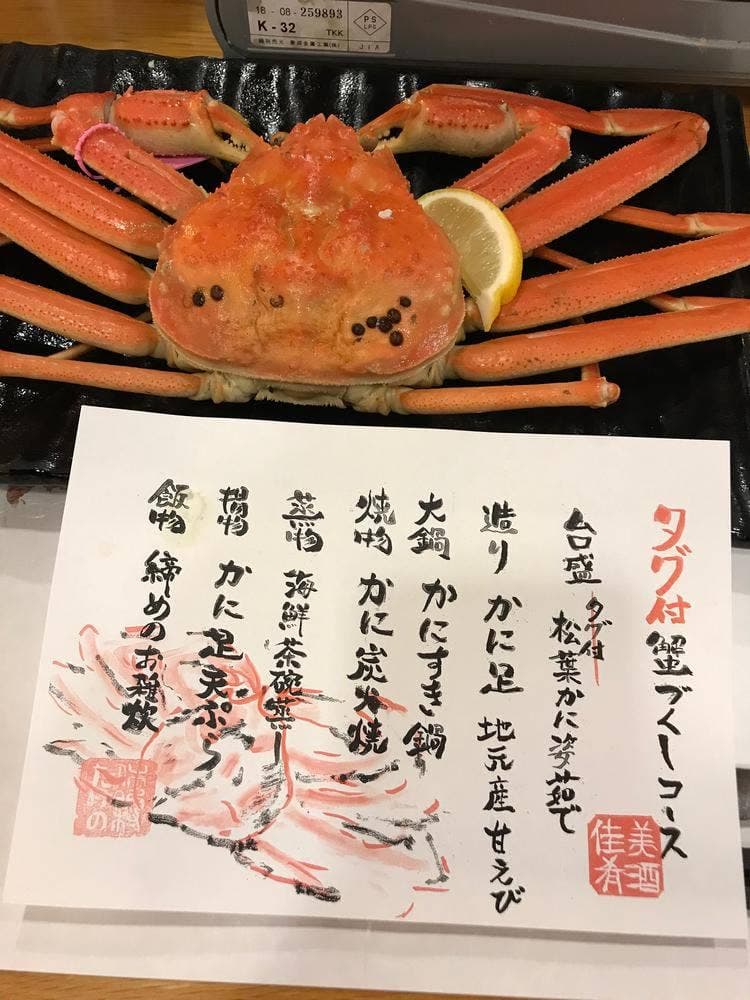 18-08-259893
K-32
TKK
PS
LPG
JIA
タグ付蟹づくしコース
台盛 タグ付松葉かに姿茹で
造り かに足 地元産甘えび
大鍋 かにすき鍋
焼物 かに炭火焼
蒸物 海鮮茶碗蒸し
揚物 かに足天ぷら
飯物 締めのお雑炊
美酒
佳肴